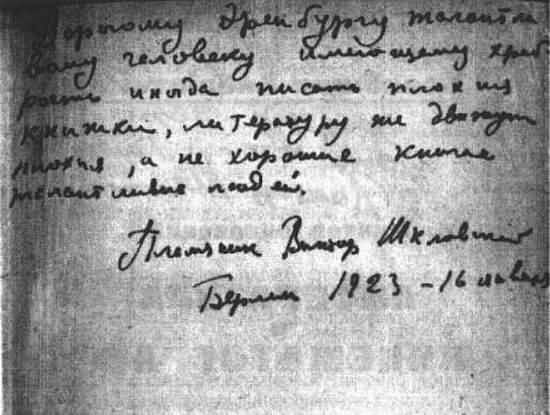 дорогому Эренбургу талантли
вому человеку имеющему храб
рость иногда писать плохия
книжки, литературу же движут
плохия, а не хорошие книги
талантливых людей.
Племянник Виктор Шкловский
Берлин 1923 – 16 января